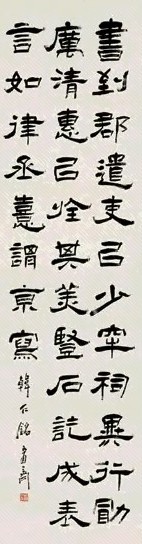 書到郡遣吏以少牢祠異行勖
厲清惠以旌其美豎石訖成表
言如律丞憙謂京寫
韓仁銘